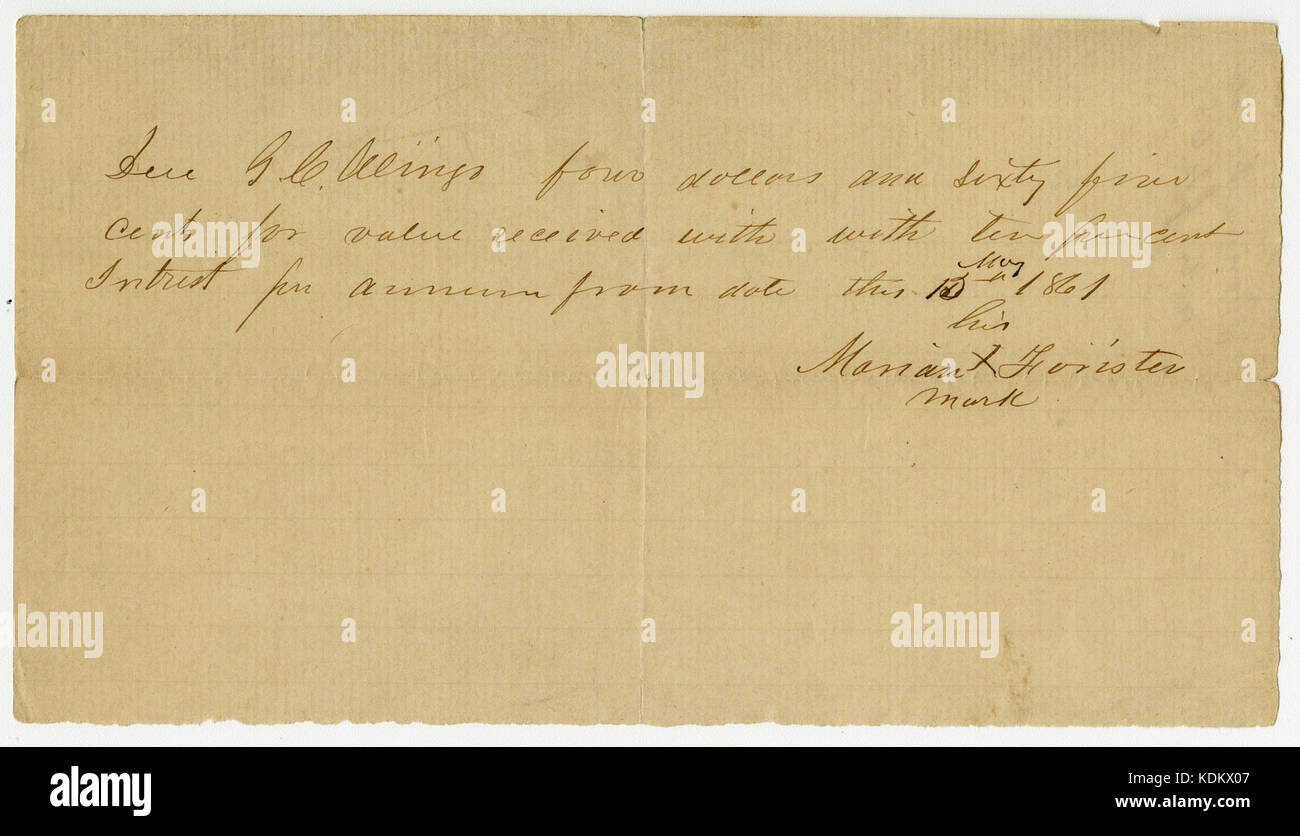 Due G C. Wings four dollors and sixty five
cents for value received with with ten per cent
Intrest per annum from date this May 1861
his
Marian X Forister
mark
alamy
alamy
alamy
Image ID: KDKX07
www.alamy.com